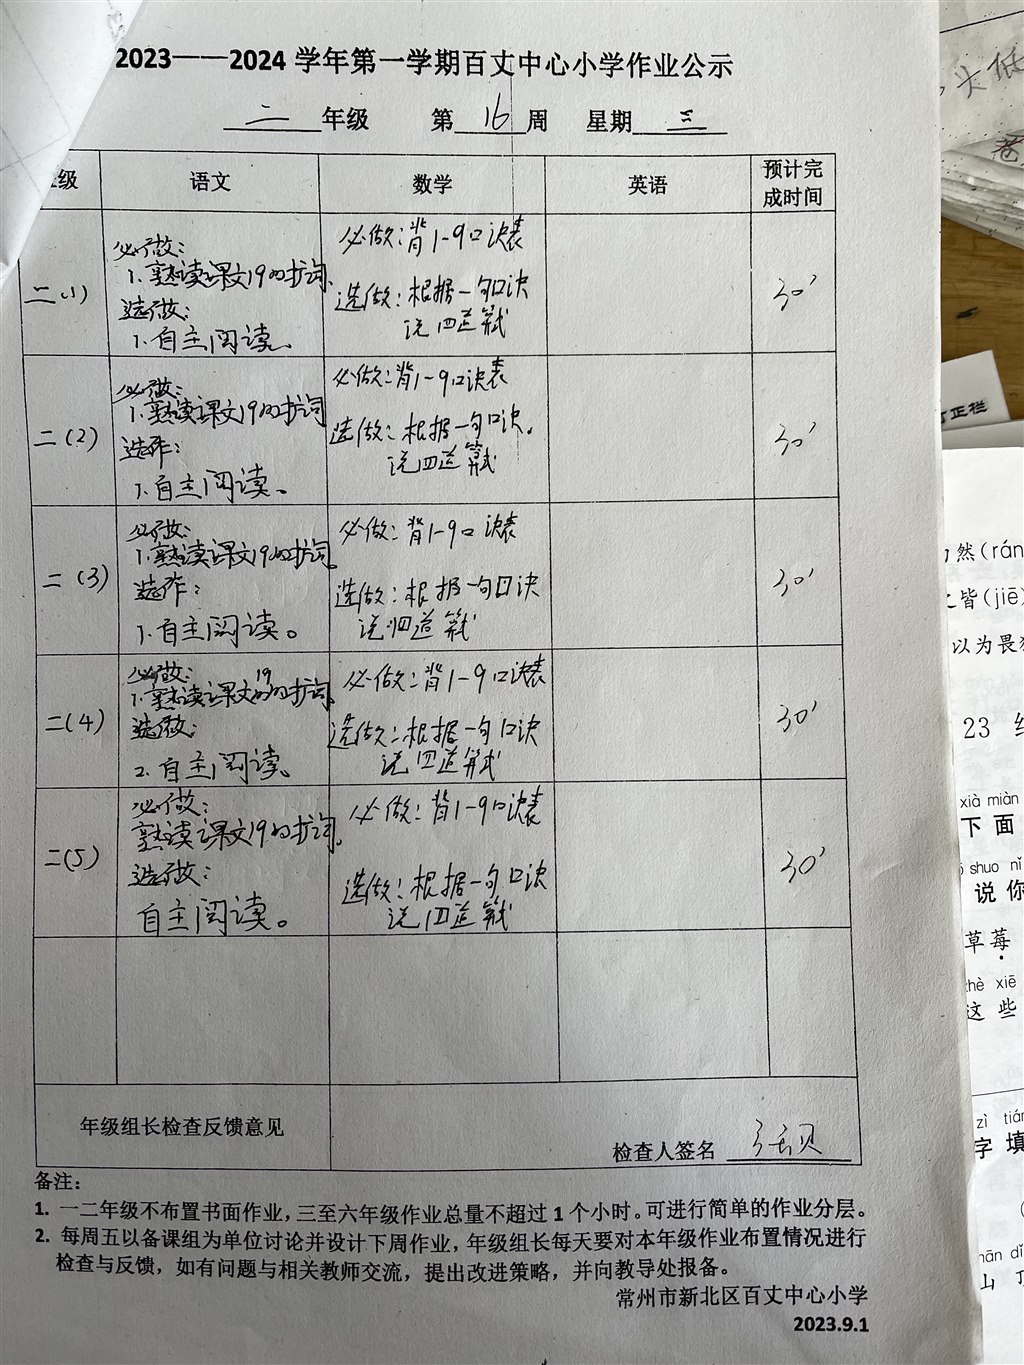 2023——2024 学年第一学期百丈中心小学作业公示
二 年级 第 16 周 星期 三
级 语文 数学 英语 预计完成时间
二(1)
必做：
1.熟读课文19的扩词
选做：
1.自主阅读。
必做：背1-9口诀表
选做：根据一句口诀
说四道算式
30'
二(2)
必做：
1.熟读课文19的扩词
选作：
1.自主阅读。
必做：背1-9口诀表
选做：根据一句口诀。
说四道算式
30'
二(3)
必做：
1.熟读课文19的扩词
选作：
1.自主阅读。
必做：背1-9口诀表
选做：根据一句口诀
说四道算式
30'
二(4)
必做：
1.熟读课文19的扩词
选做：
2.自主阅读。
必做：背1-9口诀表
选做：根据一句口诀
说四道算式
30'
二(5)
必做：
熟读课文19的扩词
选做：
自主阅读。
必做：背1-9口诀表
选做：根据一句口诀
说四道算式
30'
年级组长检查反馈意见
检查人签名
备注：
1. 一二年级不布置书面作业，三至六年级作业总量不超过 1 个小时。可进行简单的作业分层。
2. 每周五以备课组为单位讨论并设计下周作业，年级组长每天要对本年级作业布置情况进行
检查与反馈，如有问题与相关教师交流，提出改进策略，并向教导处报备。
常州市新北区百丈中心小学
2023.9.1
头低
订正栏
然(rán
皆(jiē)
以为畏
23
xià miàn
下 面
shuo nǐ
说 你
草莓
zhè xiē
这 些
zì tián
字 填
山